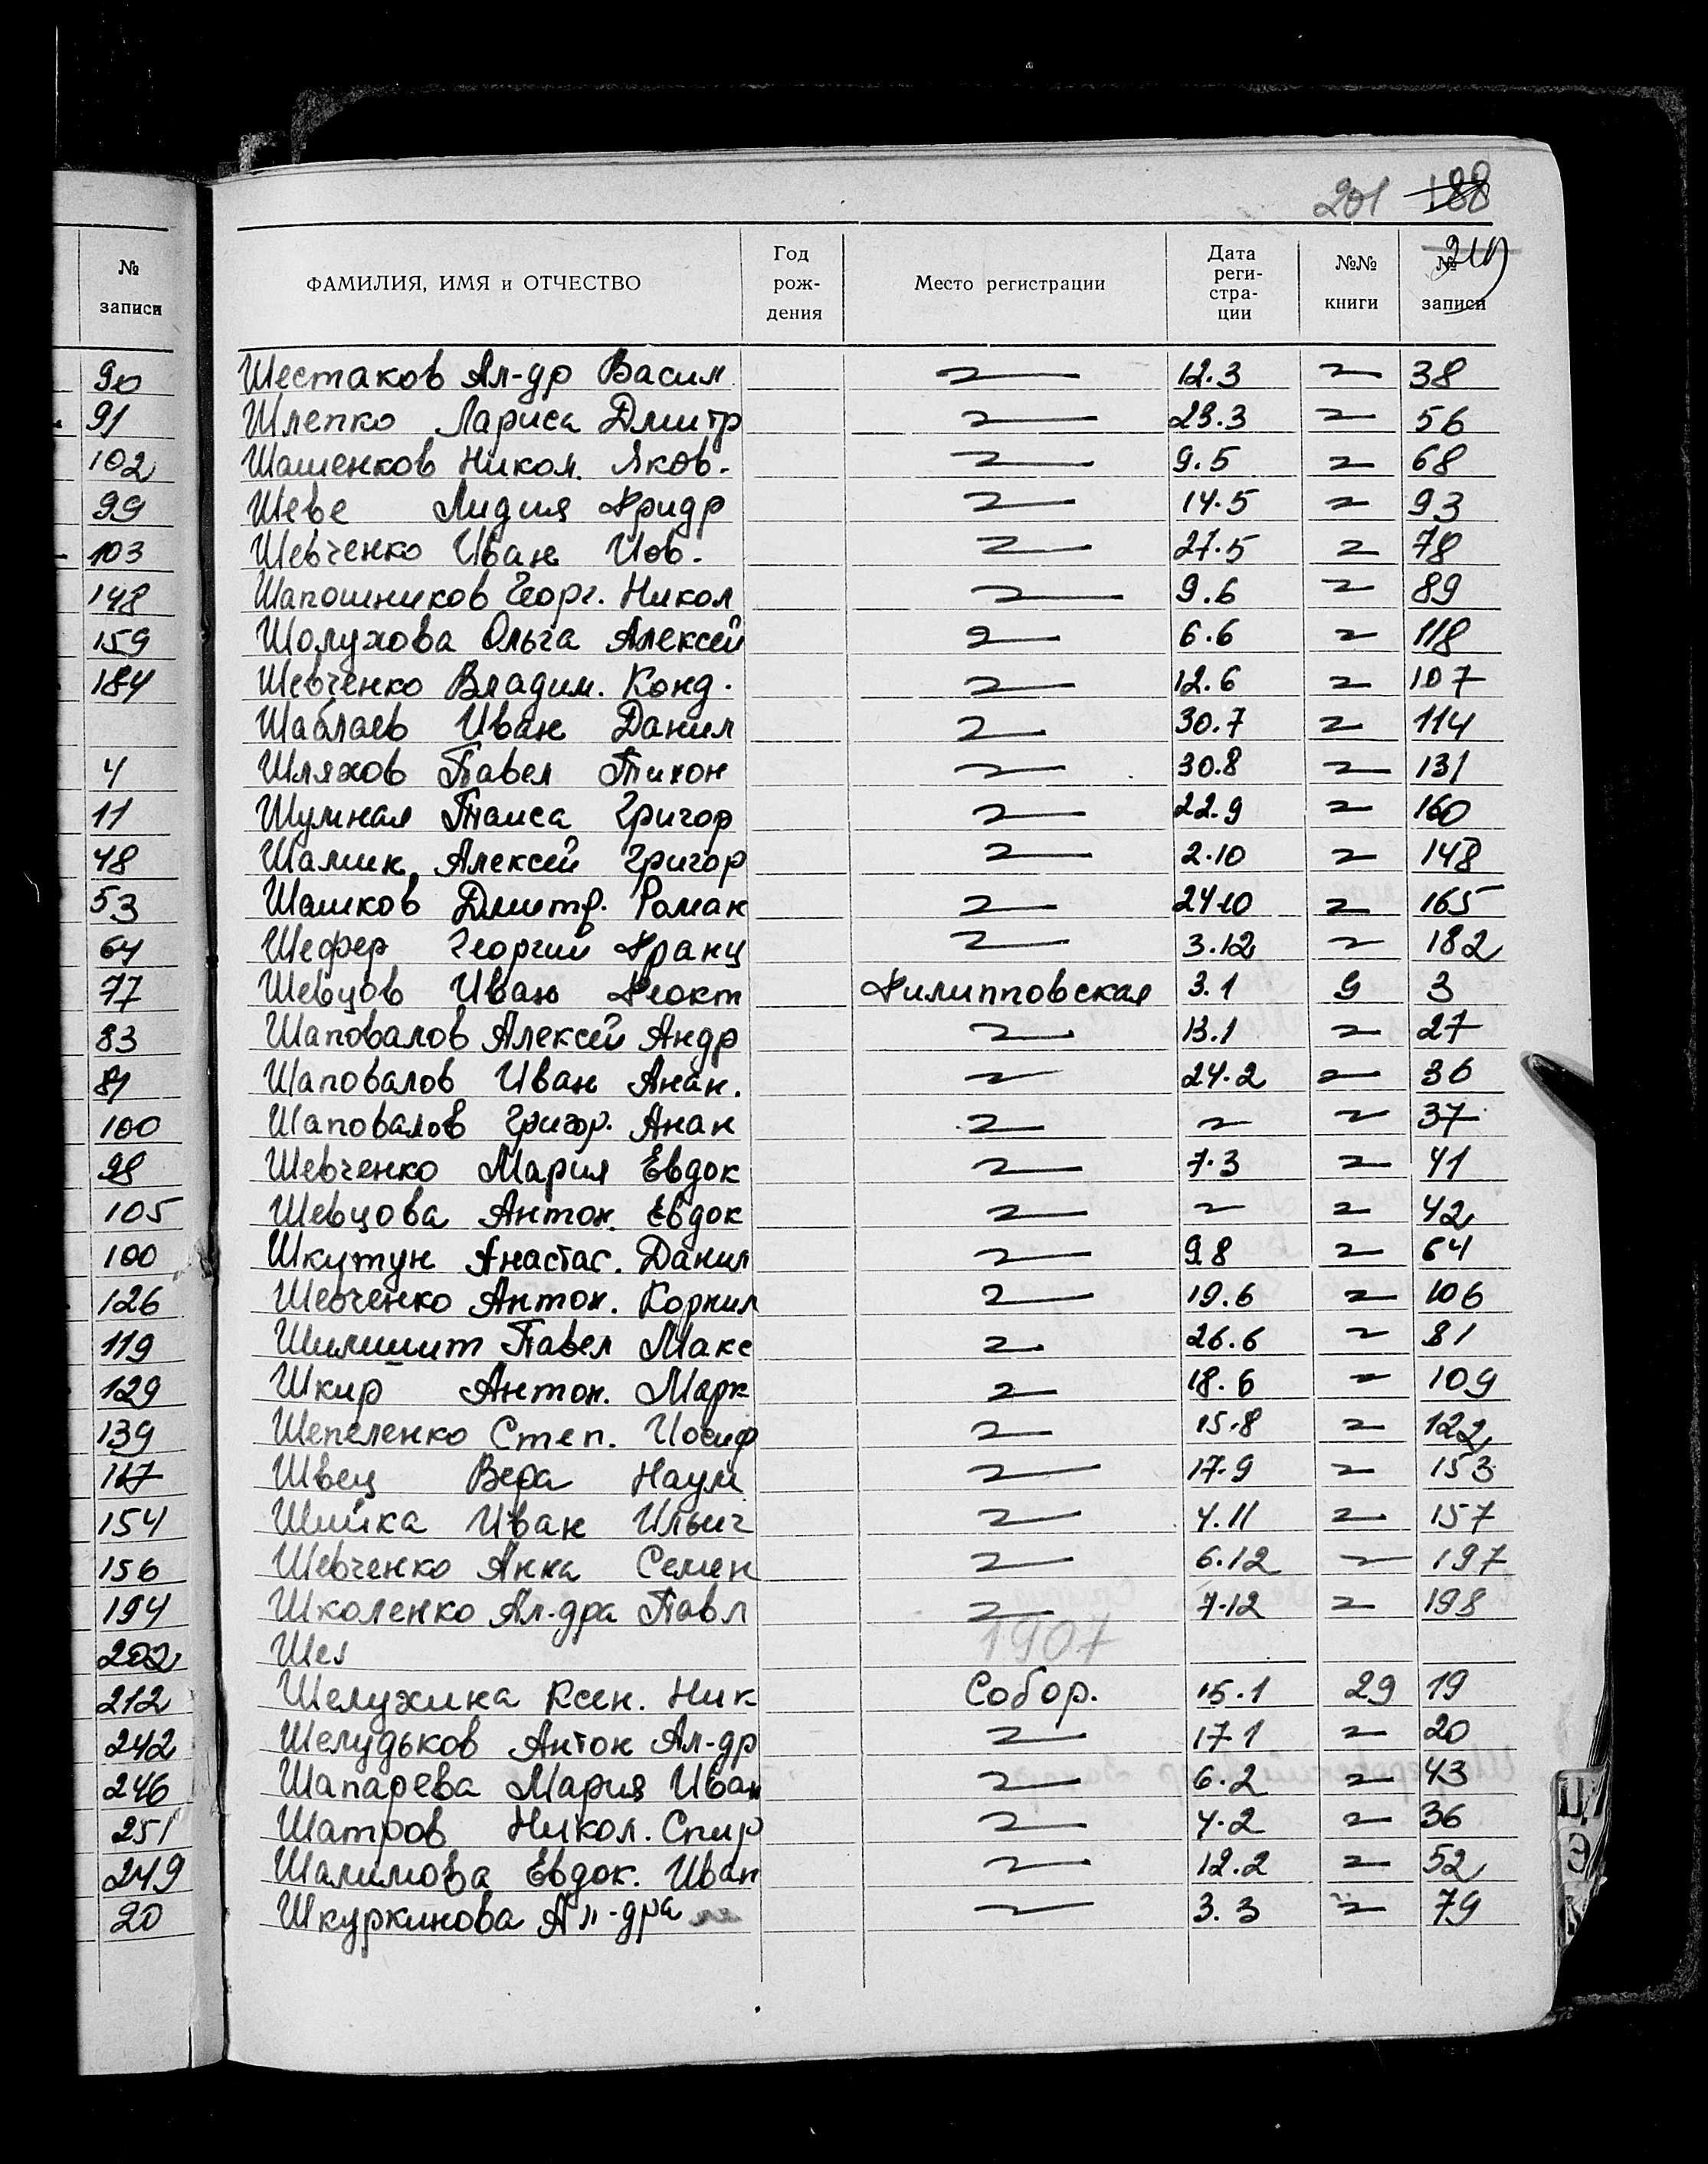 201 188
210
№ записи
ФАМИЛИЯ, ИМЯ и ОТЧЕСТВО Год рож- дения Место регистрации Дата реги- стра- ции №№ книги № записи
90 Шестаков Ал-др Васил 12.3 38
91 Шлепко Лариса Дмитр 23.3 56
102 Шашенков Никол. Яков. 9.5 68
99 Шеве Лидия Фридр 14.5 93
103 Шевченко Иван Иов. 27.5 78
148 Шапошников Георг. Никол 9.6 89
159 Шолухова Ольга Алексей 6.6 118
184 Шевченко Владим. Конд. 12.6 107
Шаблаев Иван Данил 30.7 114
4 Шляхов Павел Тихон 30.8 131
11 Шумная Таиса Григор 22.9 160
48 Шамин Алексей Григор 2.10 148
53 Шашков Дмитр. Роман 24.10 165
64 Шефер Георгий Франц 3.12 182
77 Шевцов Иван Феокт Филипповская 3.1 9 3
83 Шаповалов Алексей Андр 13.1 27
81 Шаповалов Иван Анан. 24.2 36
100 Шаповалов Григор. Анан 37
98 Шевченко Мария Евдок 7.3 41
105 Шевцова Антон. Евдок 42
100 Шкутун Анастас. Данил 9.8 64
126 Шевченко Антон. Корнил 19.6 106
119 Шилишит Павел Макс 26.6 81
129 Шкир Антон. Марк 18.6 109
139 Шепеленко Степ. Иосиф 15.8 122
117 Швец Вера Наум 17.9 153
154 Шийка Иван Ильич 4.11 157
156 Шевченко Анна Семен 6.12 197
194 Школенко Ал-дра Павл 7.12 198
202 Шел 1907
212 Шелухина Ксен. Ник Собор. 15.1 29 19
242 Шелудьков Антон Ал-др 17.1 20
246 Шапарева Мария Иван 6.2 43
251 Шатров Никол. Спир 4.2 36
249 Шалимова Евдок. Иван 12.2 52
20 Шкуркинова Ал-дра 3.3 79
Э